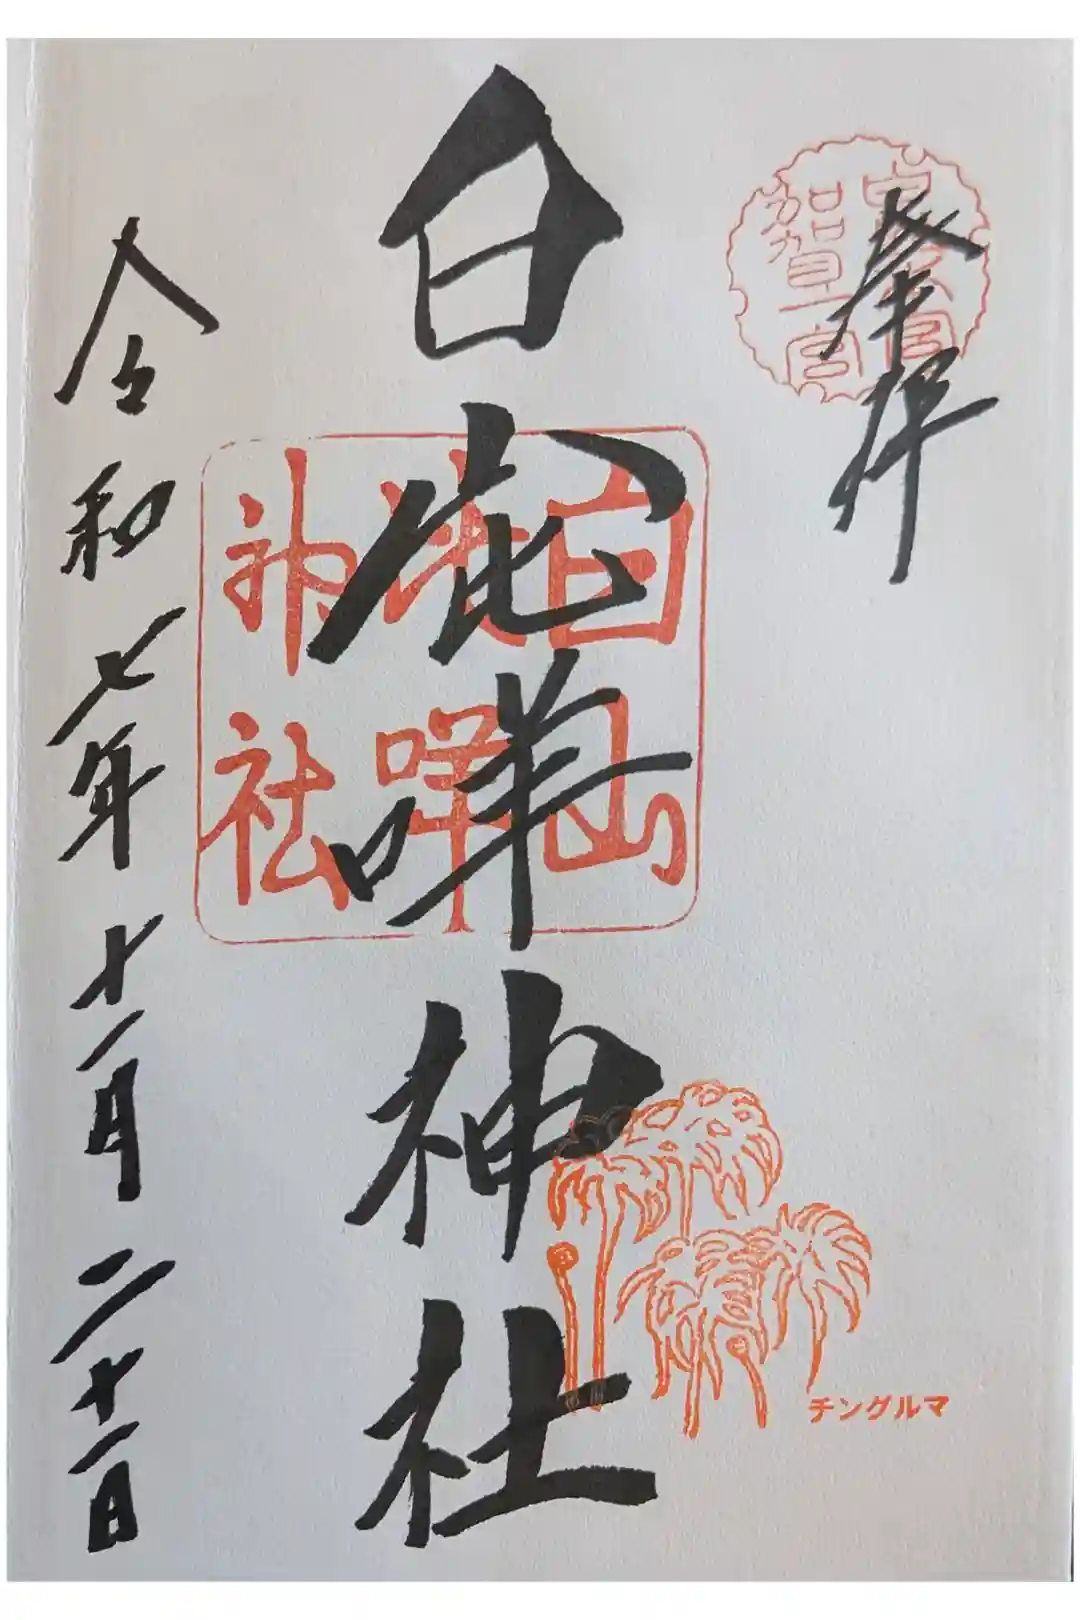 奉拝
加賀一宮
白山比咩神社
白山
比咩
神社
令和七年十一月二十一日
チングルマ